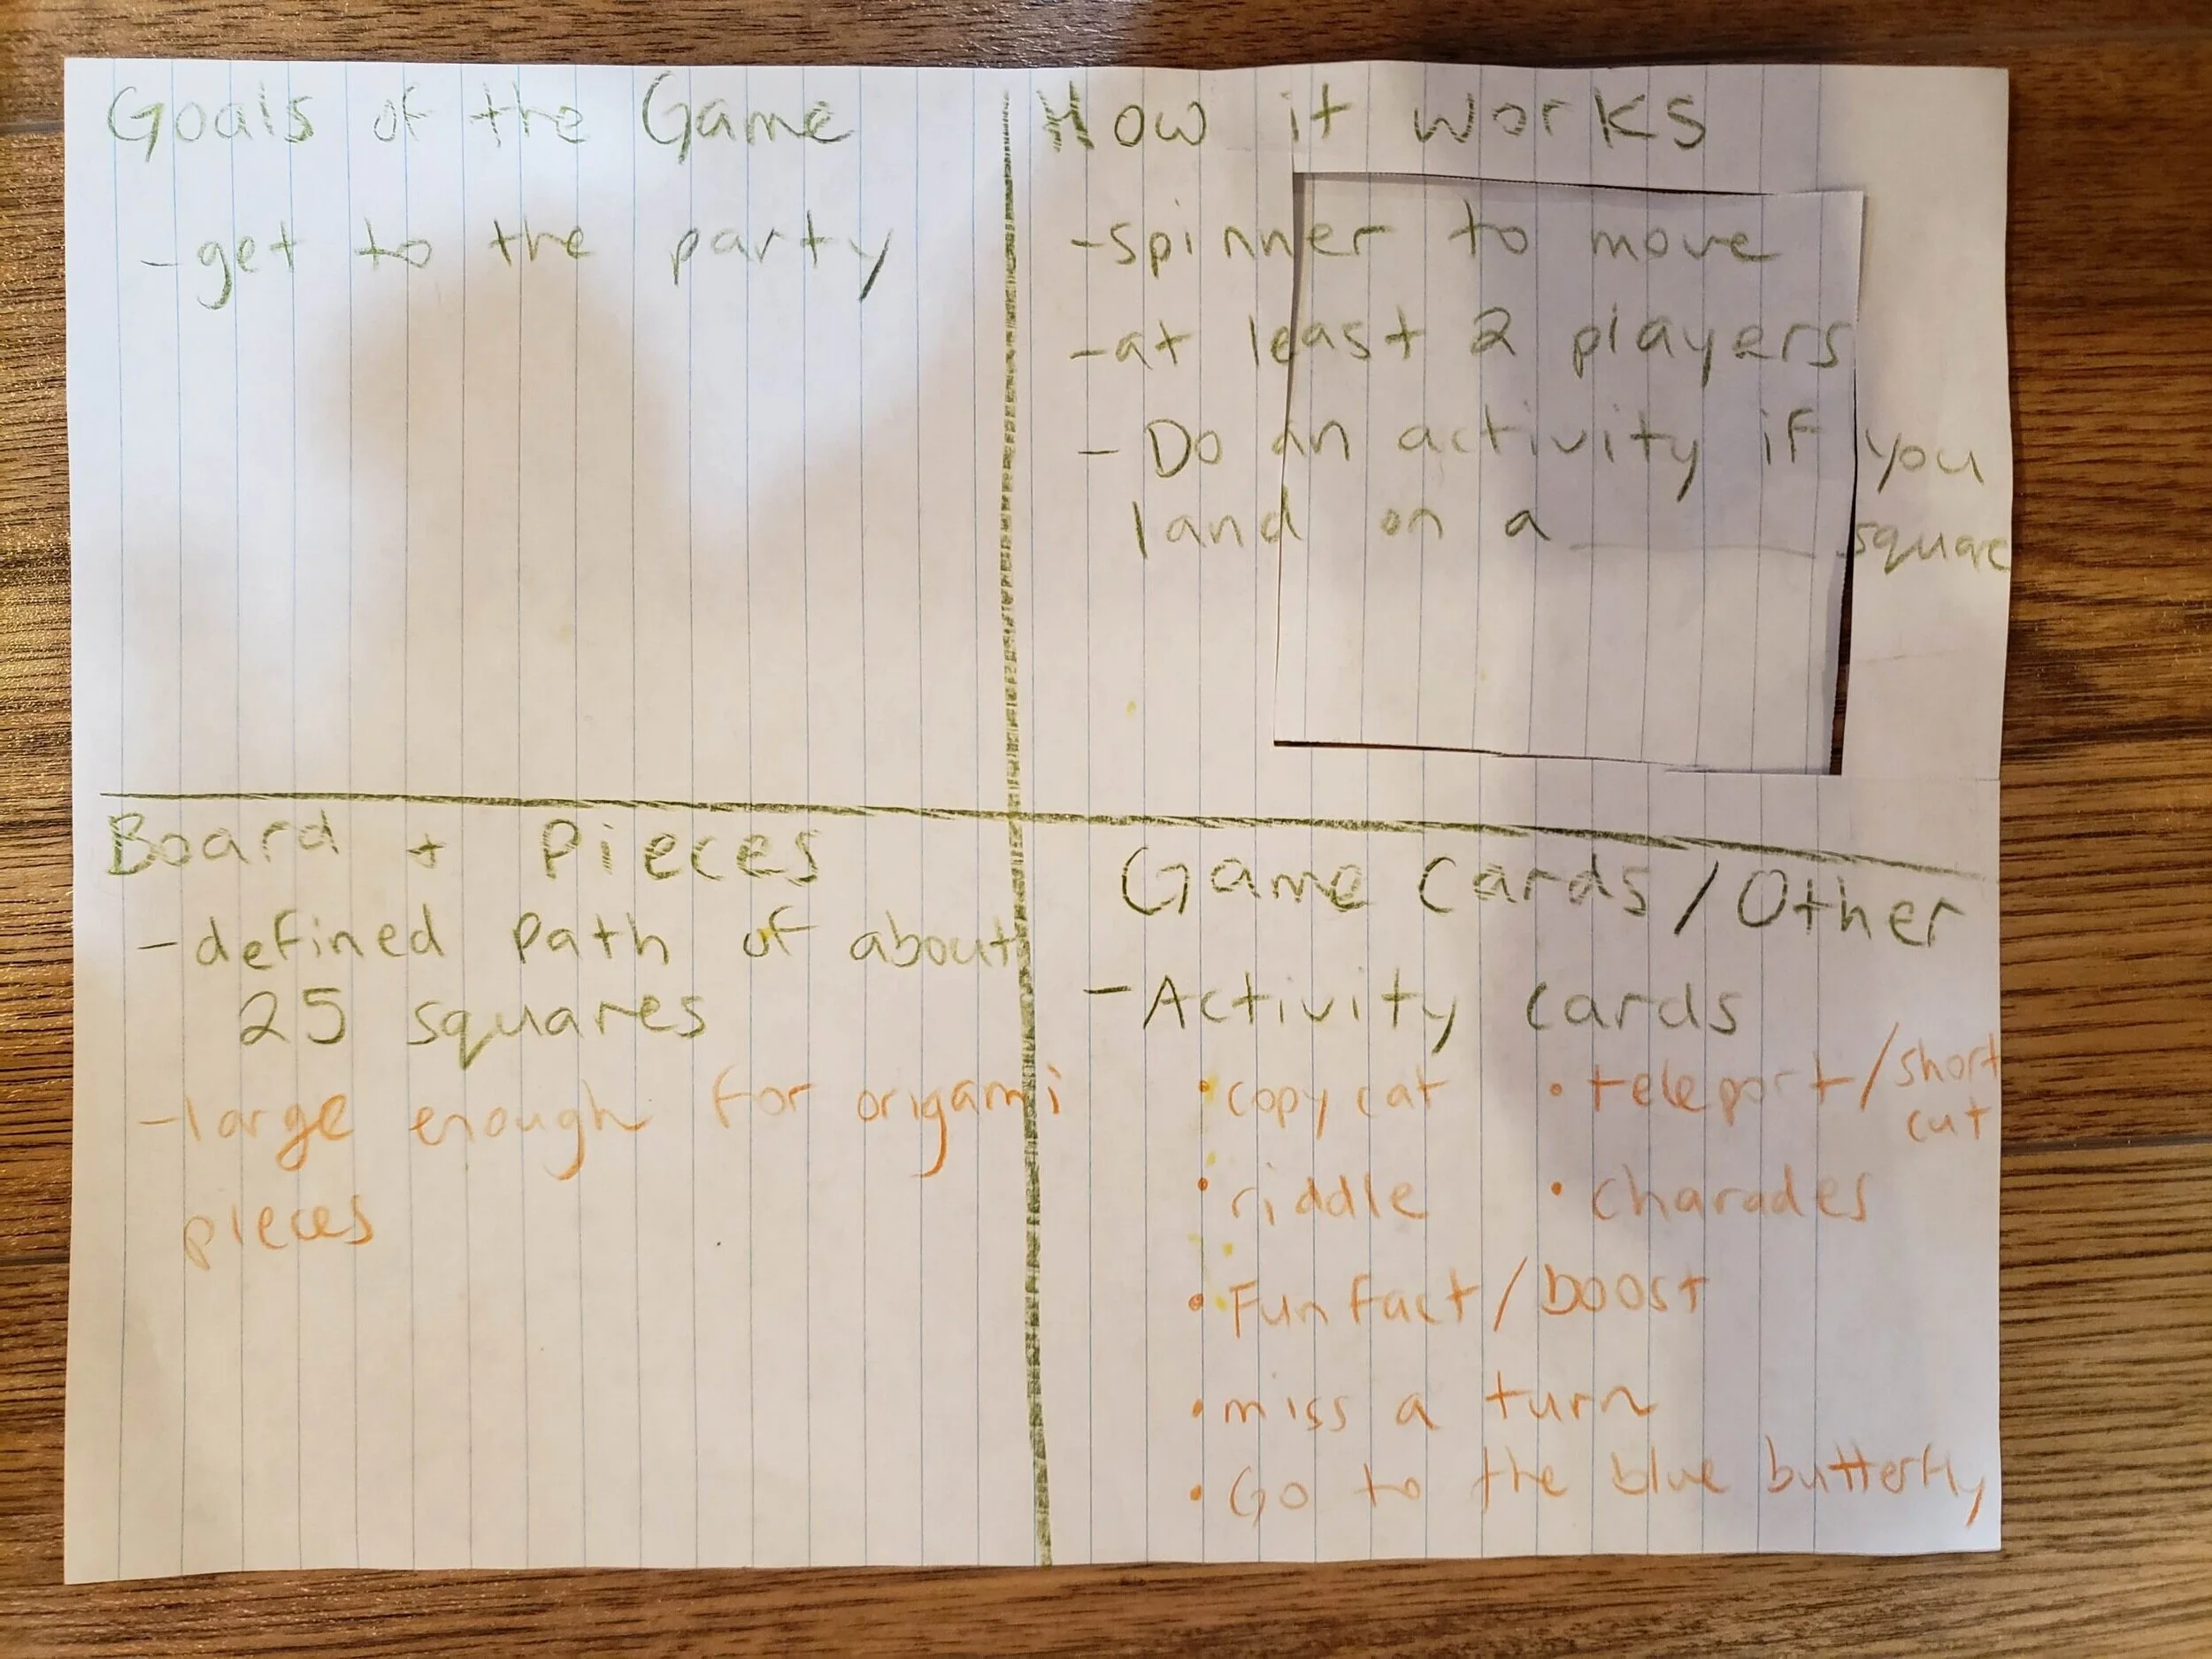 Goals of the Game
-get to the party
How it works
-spinner to move
-at least 2 players
- Do an activity if you
land on a ______ square
Board + Pieces
-defined path of about
25 squares
-large enough for origami
pieces
Game Cards/Other
-Activity cards
•copy cat
•riddle
•Fun fact/boost
•miss a turn
•Go to the blue butterfly
•teleport/short
cut
•charades